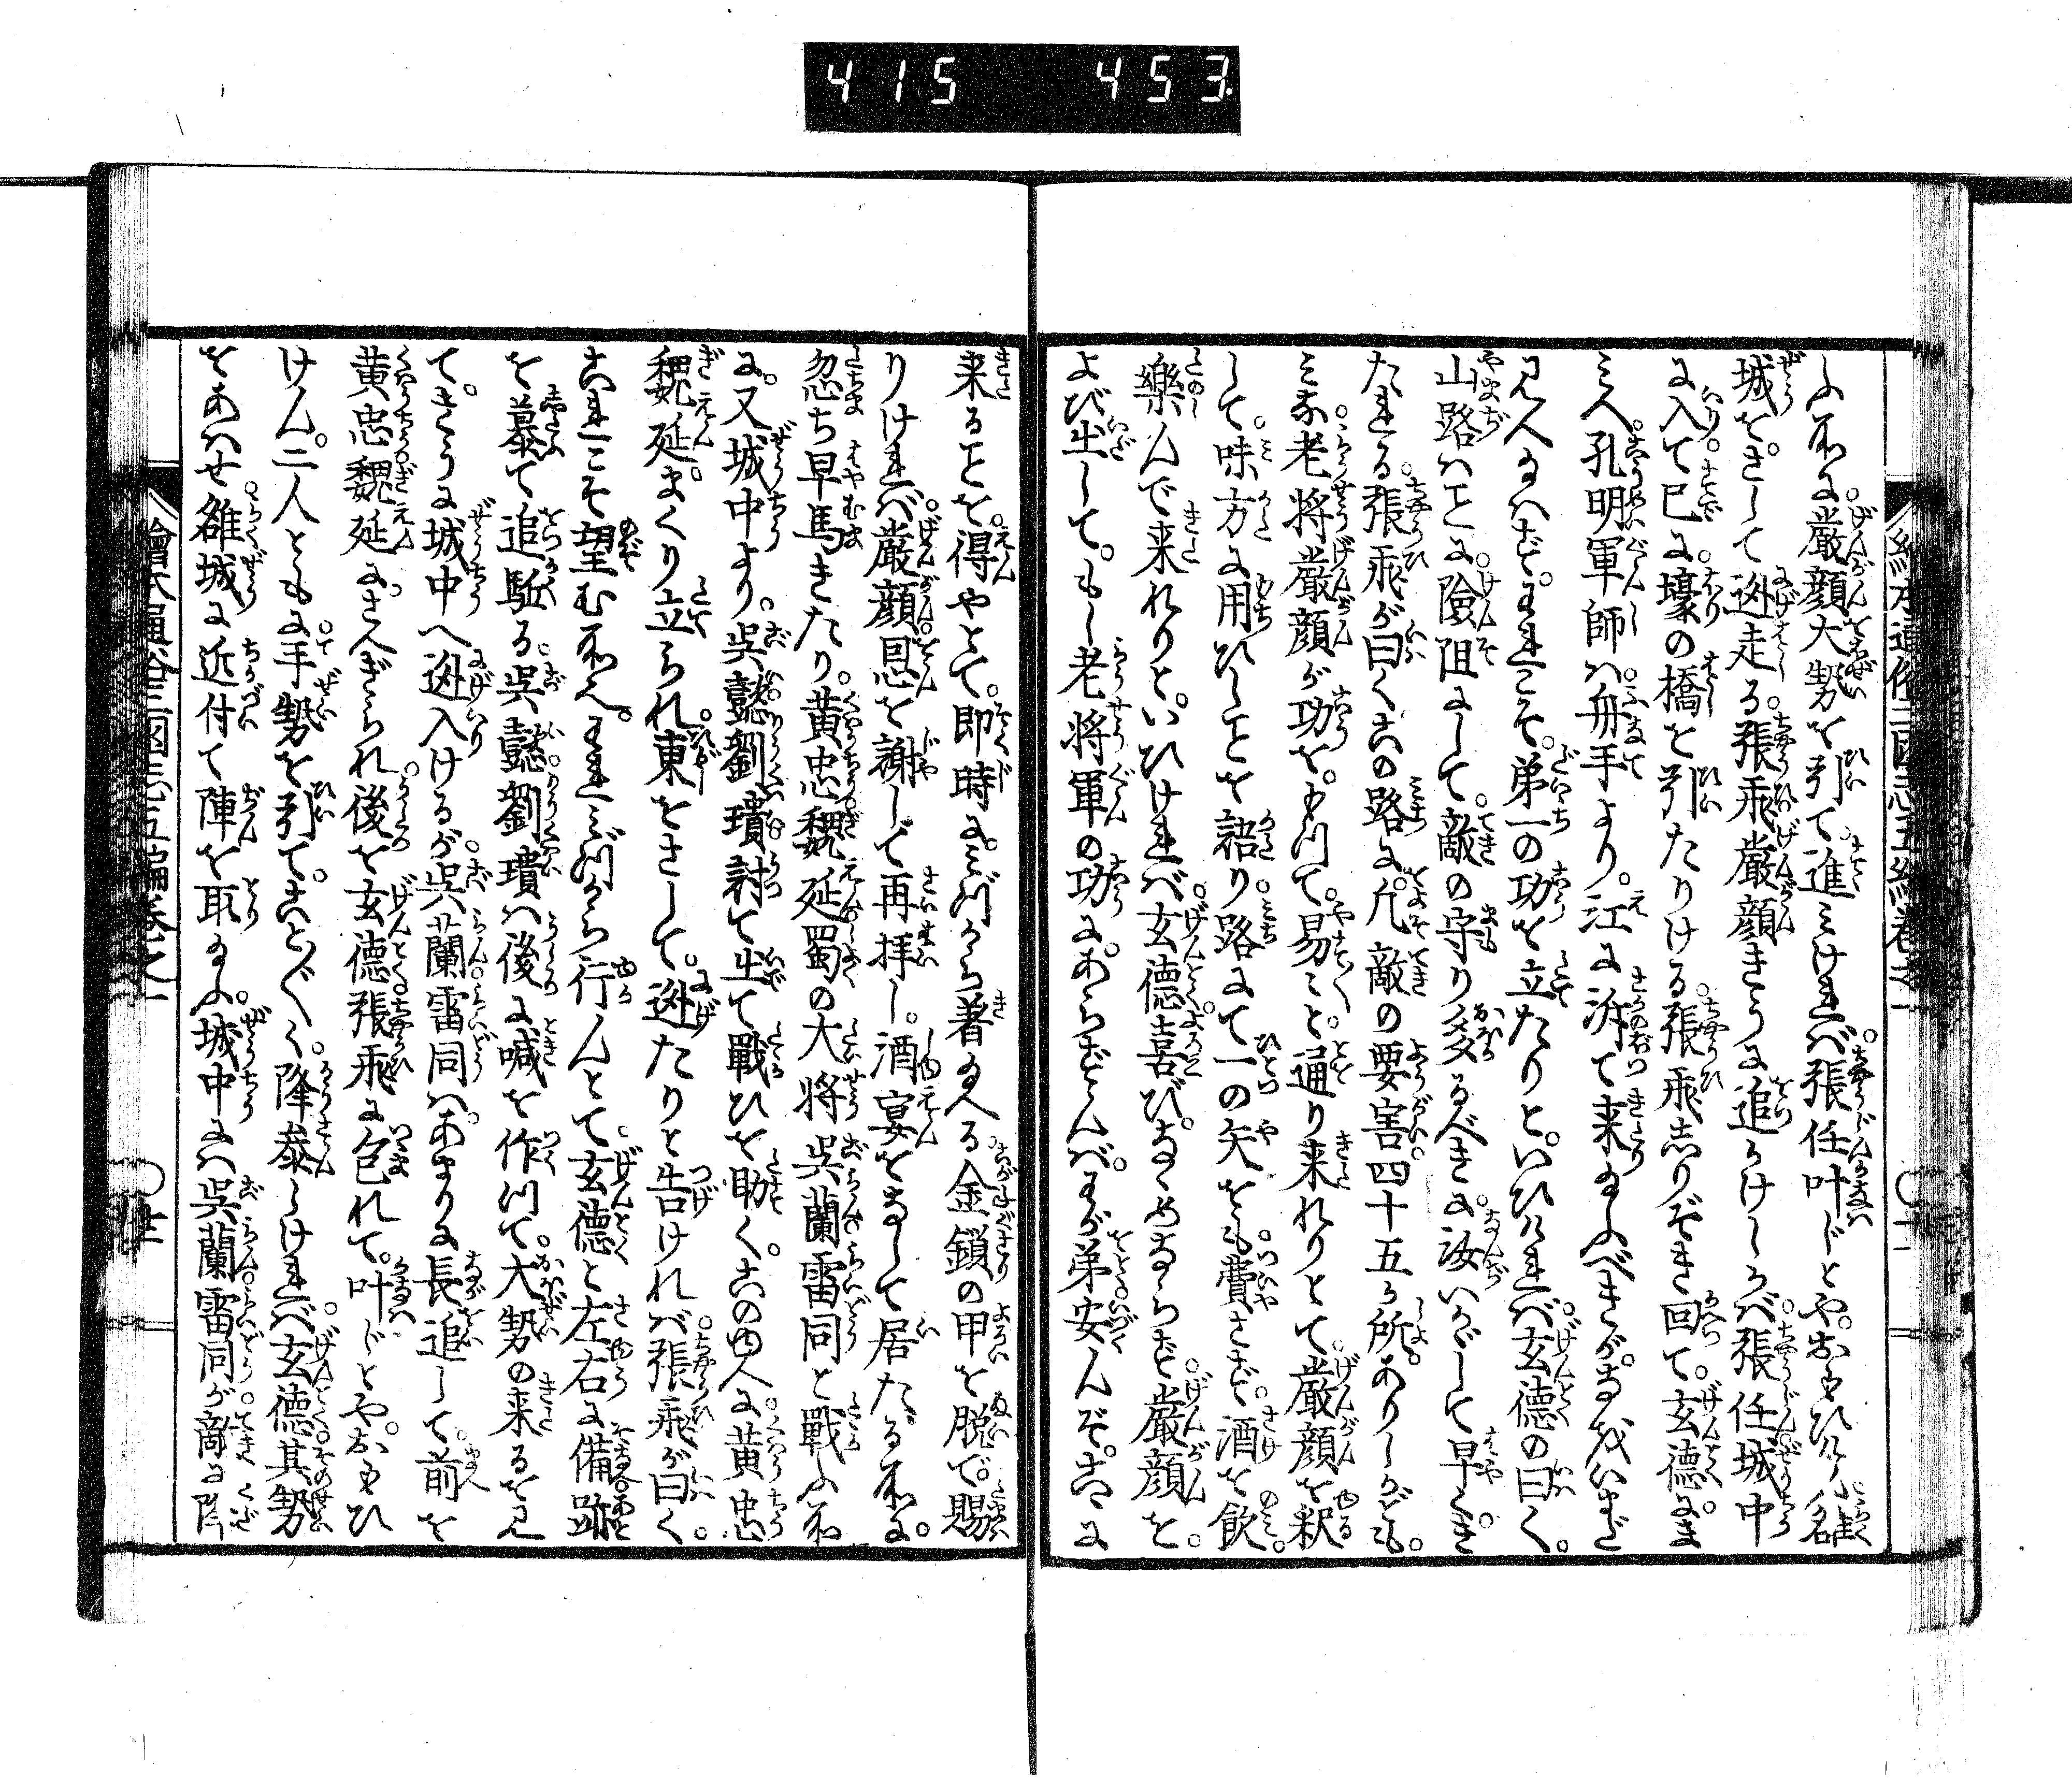 415 453
ふ所に嚴顔大勢を引て進みければ張任叶じとやおもひけん雒
城をさして迯走る張飛嚴顔きうに追かけしかば張任城中
に入て已に壕の橋を引たりける張飛しりぞき回て玄德にま
みへ孔明軍師は舟手より江に泝て来給ふべきがなをいまだ
見へ給はずわれこそ第一の功を立たりといひければ玄德の曰く
山路はことに險阻にして敵の守り多かるべきに汝いかゞして早くき
たれる張飛が曰くこの路に凡敵の要害四十五か所ありしかども
みな老将嚴顔が功をもつて易々と通り来れりとて嚴顔を釈
して味方に用ひしことを語り路にて一の矢をも費さず酒を飲
樂んで来れりといひければ玄德喜びなゝめならず嚴顔を
よび出してもし老将軍の功にあらずんばわが弟安んぞこゝに
来ることを得んやとて即時にみづから著給へる金鎖の甲を脱で賜
りければ嚴顔恩を謝して再拝し酒宴をなして居たる所に
忽ち早馬きたり黄忠魏延蜀の大将呉蘭雷同と戰ふ所
に又城中より呉懿劉璝討て出て戰ひを助くこの四人に黄忠
魏延まくり立られ東をさして迯たりと告ければ張飛が曰く
これこそ望む所へわれみづから行んとて玄德と左右に備跡
を慕て追駈る呉懿劉璝は後に喊を作つて大勢の来るを見
てきうに城中へ迯入けるが呉蘭雷同はあまりに長追して前を
黄忠魏延にさへぎられ後を玄德張飛に包れて叶じとやおもひ
けん二人ともに手勢を引てことごとく降參しければ玄德其勢
をあはせ雒城に近付て陣を取給ふ城中には呉蘭雷同が敵に降